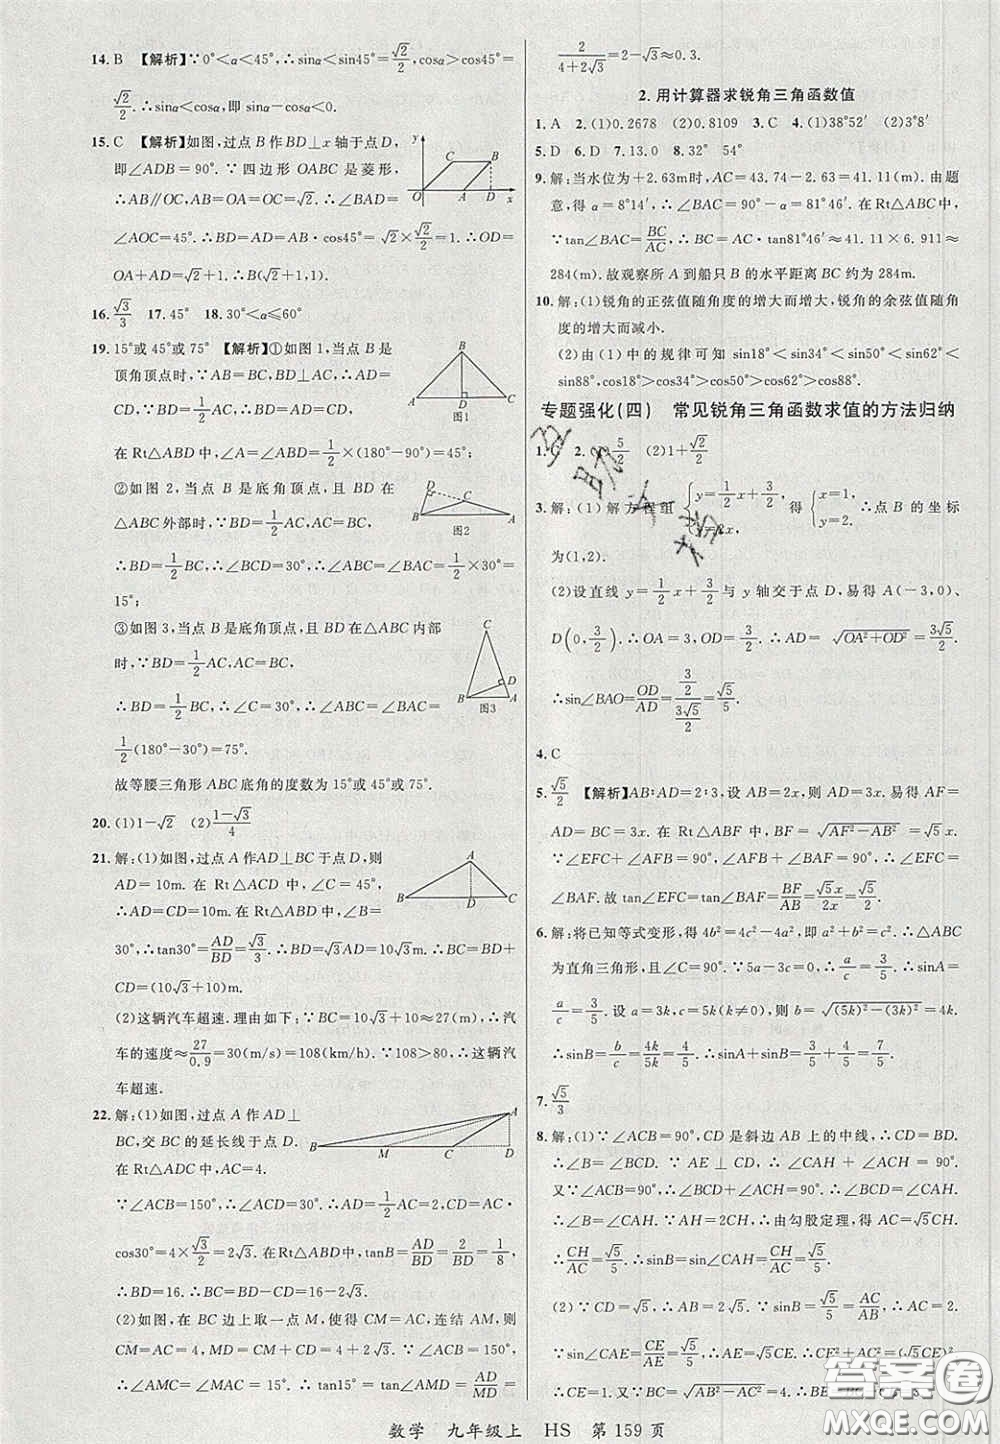 14. B 【解析】∵0°<α<45°,∴sinα<sin45°=√2/2,cosα>cos45°=
√2/2.∴sinα<cosα,即 sinα-cosα<0.
15. C 【解析】如图,过点 B 作 BD⊥x 轴于点 D,
即∠ADB=90°.∵四边形 OABC 是菱形,
∴AB∥OC,AB=OA=OC=√2.∴∠BAD=
∠AOC=45°.∴BD=AD=AB·cos45°=√2×√2/2=1.∴OD=
OA+AD=√2+1.∴B(√2+1,1).
16. √3/3 17. 45° 18. 30°<α≤60°
19. 15°或 45°或 75° 【解析】①如图 1,当点 B 是
顶角顶点时,∵AB=BC,BD⊥AC,∴AD=
CD.∵BD=1/2AC,∴AD=BD=CD.
在 Rt△ABD 中,∠A=∠ABD=1/2×(180°-90°)=45°;
②如图 2,当点 B 是底角顶点,且 BD 在
△ABC 外部时,∵BD=1/2AC,AC=BC,
∴BD=1/2BC.∴∠BCD=30°.∴∠ABC=1/2×30°=
15°;
③如图 3,当点 B 是底角顶点,且 BD 在△ABC 内部
时,∵BD=1/2AC,AC=BC,
∴BD=1/2BC,∴∠C=30°.∴∠ABC=
1/2(180°-30°)=75°.
故等腰三角形 ABC 底角的度数为 15°或 45°或 75°.
20. (1)1-√2 (2)(1-√3)/4
21. 解:(1)如图,过点 A 作AD⊥BC 于点 D,则
AD=10m. 在 Rt△ACD 中,∵∠C=45°,
∴AD=CD=10m.在 Rt△ABD 中,∵∠B=
30°,∴tan30°=AD/BD=√3/3.∴BD=√3AD=10√3m.∴BC=BD+
CD=(10√3+10)m.
(2)这辆汽车超速.理由如下:∵BC=10√3+10≈27(m),∴汽
车的速度≈27/0.9=30(m/s)=108(km/h).∵108>80,∴这辆汽
车超速.
22. 解:(1)如图,过点 A 作 AD⊥
BC,交 BC 的延长线于点 D.
在 Rt△ADC 中,AC=4.
∵∠ACB=150°,∴∠ACD=30°.∴AD=1/2AC=2,CD=AC·
cos30°=4×√3/2=2√3.在 Rt△ABD 中,tanB=AD/BD=2/BD=1/8,
∴BD=16.∴BC=BD-CD=16-2√3.
(2)如图,在 BC 边上取一点 M,使得 CM=AC,连结 AM,则
CM=AC=4,MD=CM+CD=4+2√3.∵∠ACB=150°,
∴∠AMC=∠MAC=15°.∴tan15°=tan∠AMD=AD/MD=
2/(4+2√3)=2-√3≈0.3.
2.用计算器求锐角三角函数值
1. A 2. (1)0.2678 (2)0.8109 3. C 4. (1)38°52′ (2)3°8′
5. D 6. D 7. 13.0 8. 32° 54°
9. 解:当水位为+2.63m时,AC=43.74-2.63=41.11(m).由题
意,得 α=8°14′,∴∠BAC=90°-α=81°46′.在 Rt△ABC 中,
∵tan∠BAC=BC/AC,∴BC=AC·tan81°46′≈41.11×6.911≈
284(m).故观察所 A 到船只 B 的水平距离 BC 约为 284m.
10. 解:(1)锐角的正弦值随角度的增大而增大,锐角的余弦值随角
度的增大而减小.
(2)由(1)中的规律可知 sin18°<sin34°<sin50°<sin62°<
sin88°,cos18°>cos34°>cos50°>cos62°>cos88°.
专题强化(四) 常见锐角三角函数求值的方法归纳
1. C 2. 5/2 (2)1+√2/2
3. 解:(1)解方程组{y=1/2x+3/2, 得{x=1, y=2.∴点 B 的坐标
为(1,2).
(2)设直线 y=1/2x+3/2与 y 轴交于点 D,易得 A(-3,0)、
D(0,3/2).∴OA=3,OD=3/2.∴AD=√(OA²+OD²)=3√5/2.
∴sin∠BAO=OD/AD=(3/2)/(3√5/2)=√5/5.
4. C
5. √5/2 【解析】AB:AD=2:3,设 AB=2x,则 AD=3x.易得 AF=
AD=BC=3x.在 Rt△ABF 中,BF=√(AF²-AB²)=√5x.
∵∠EFC+∠AFB=90°,∠AFB+∠BAF=90°,∴∠EFC=
∠BAF.故 tan∠EFC=tan∠BAF=BF/AB=√5x/2x=√5/2.
6. 解:将已知等式变形,得 4b²=4c²-4a²,即 a²+b²=c².∴△ABC
为直角三角形,且∠C=90°.∵5a-3c=0,∴a/c=3/5.∴sinA=
a/c=3/5.设 a=3k,c=5k(k≠0),则 b=√((5k)²-(3k)²)=4k.
∴sinB=b/c=4k/5k=4/5.∴sinA+sinB=3/5+4/5=7/5.
7. √5/3
8. 解:(1)∵∠ACB=90°,CD 是斜边 AB 上的中线,∴CD=BD.
∴∠B=∠BCD.∵AE⊥CD,∴∠ACH+∠CAH=90°.
又∵∠ACB=90°,∴∠BCD+∠ACH=90°.∴∠BCD=∠CAH.
又∵∠B=∠BCD,∴∠B=∠CAH.∵AH=2CH,∴由勾股定理,得 AC=√5CH.
∴CH/AC=√5/5.∴sinB=sin∠CAH=CH/AC=√5/5.
(2)∵CD=√5,∴AB=2√5.∵sinB=√5/5=AC/AB,∴AC=2.
∵sin∠CAE=CE/AE=√5/5,∴AE=√5CE.∴CE²+AC²=
∴CE=1.∵BC=√(AB²-AC²)=4,∴BE=3.
B C A O D x y
A B D C 图1
D C B A 图2
C D B A 图3
A B D C
A B M C D
数学 九年级上 HS 第 159 页
答案圈
MXQE.COM